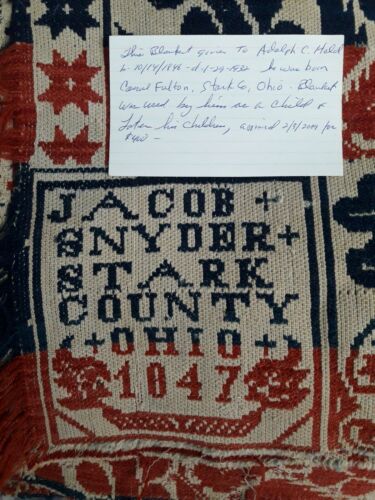 This Blanket given to Adolph C.
b- 10/14/1846 - d- He was born
Canal Fulton, Stark Co, Ohio - Blanket
was used by him as a Child &
Later his Children, 2/5/2009 for
$400 -
JACOB+
SNYDER+
STARK
COUNTY
+OHIO+
1047